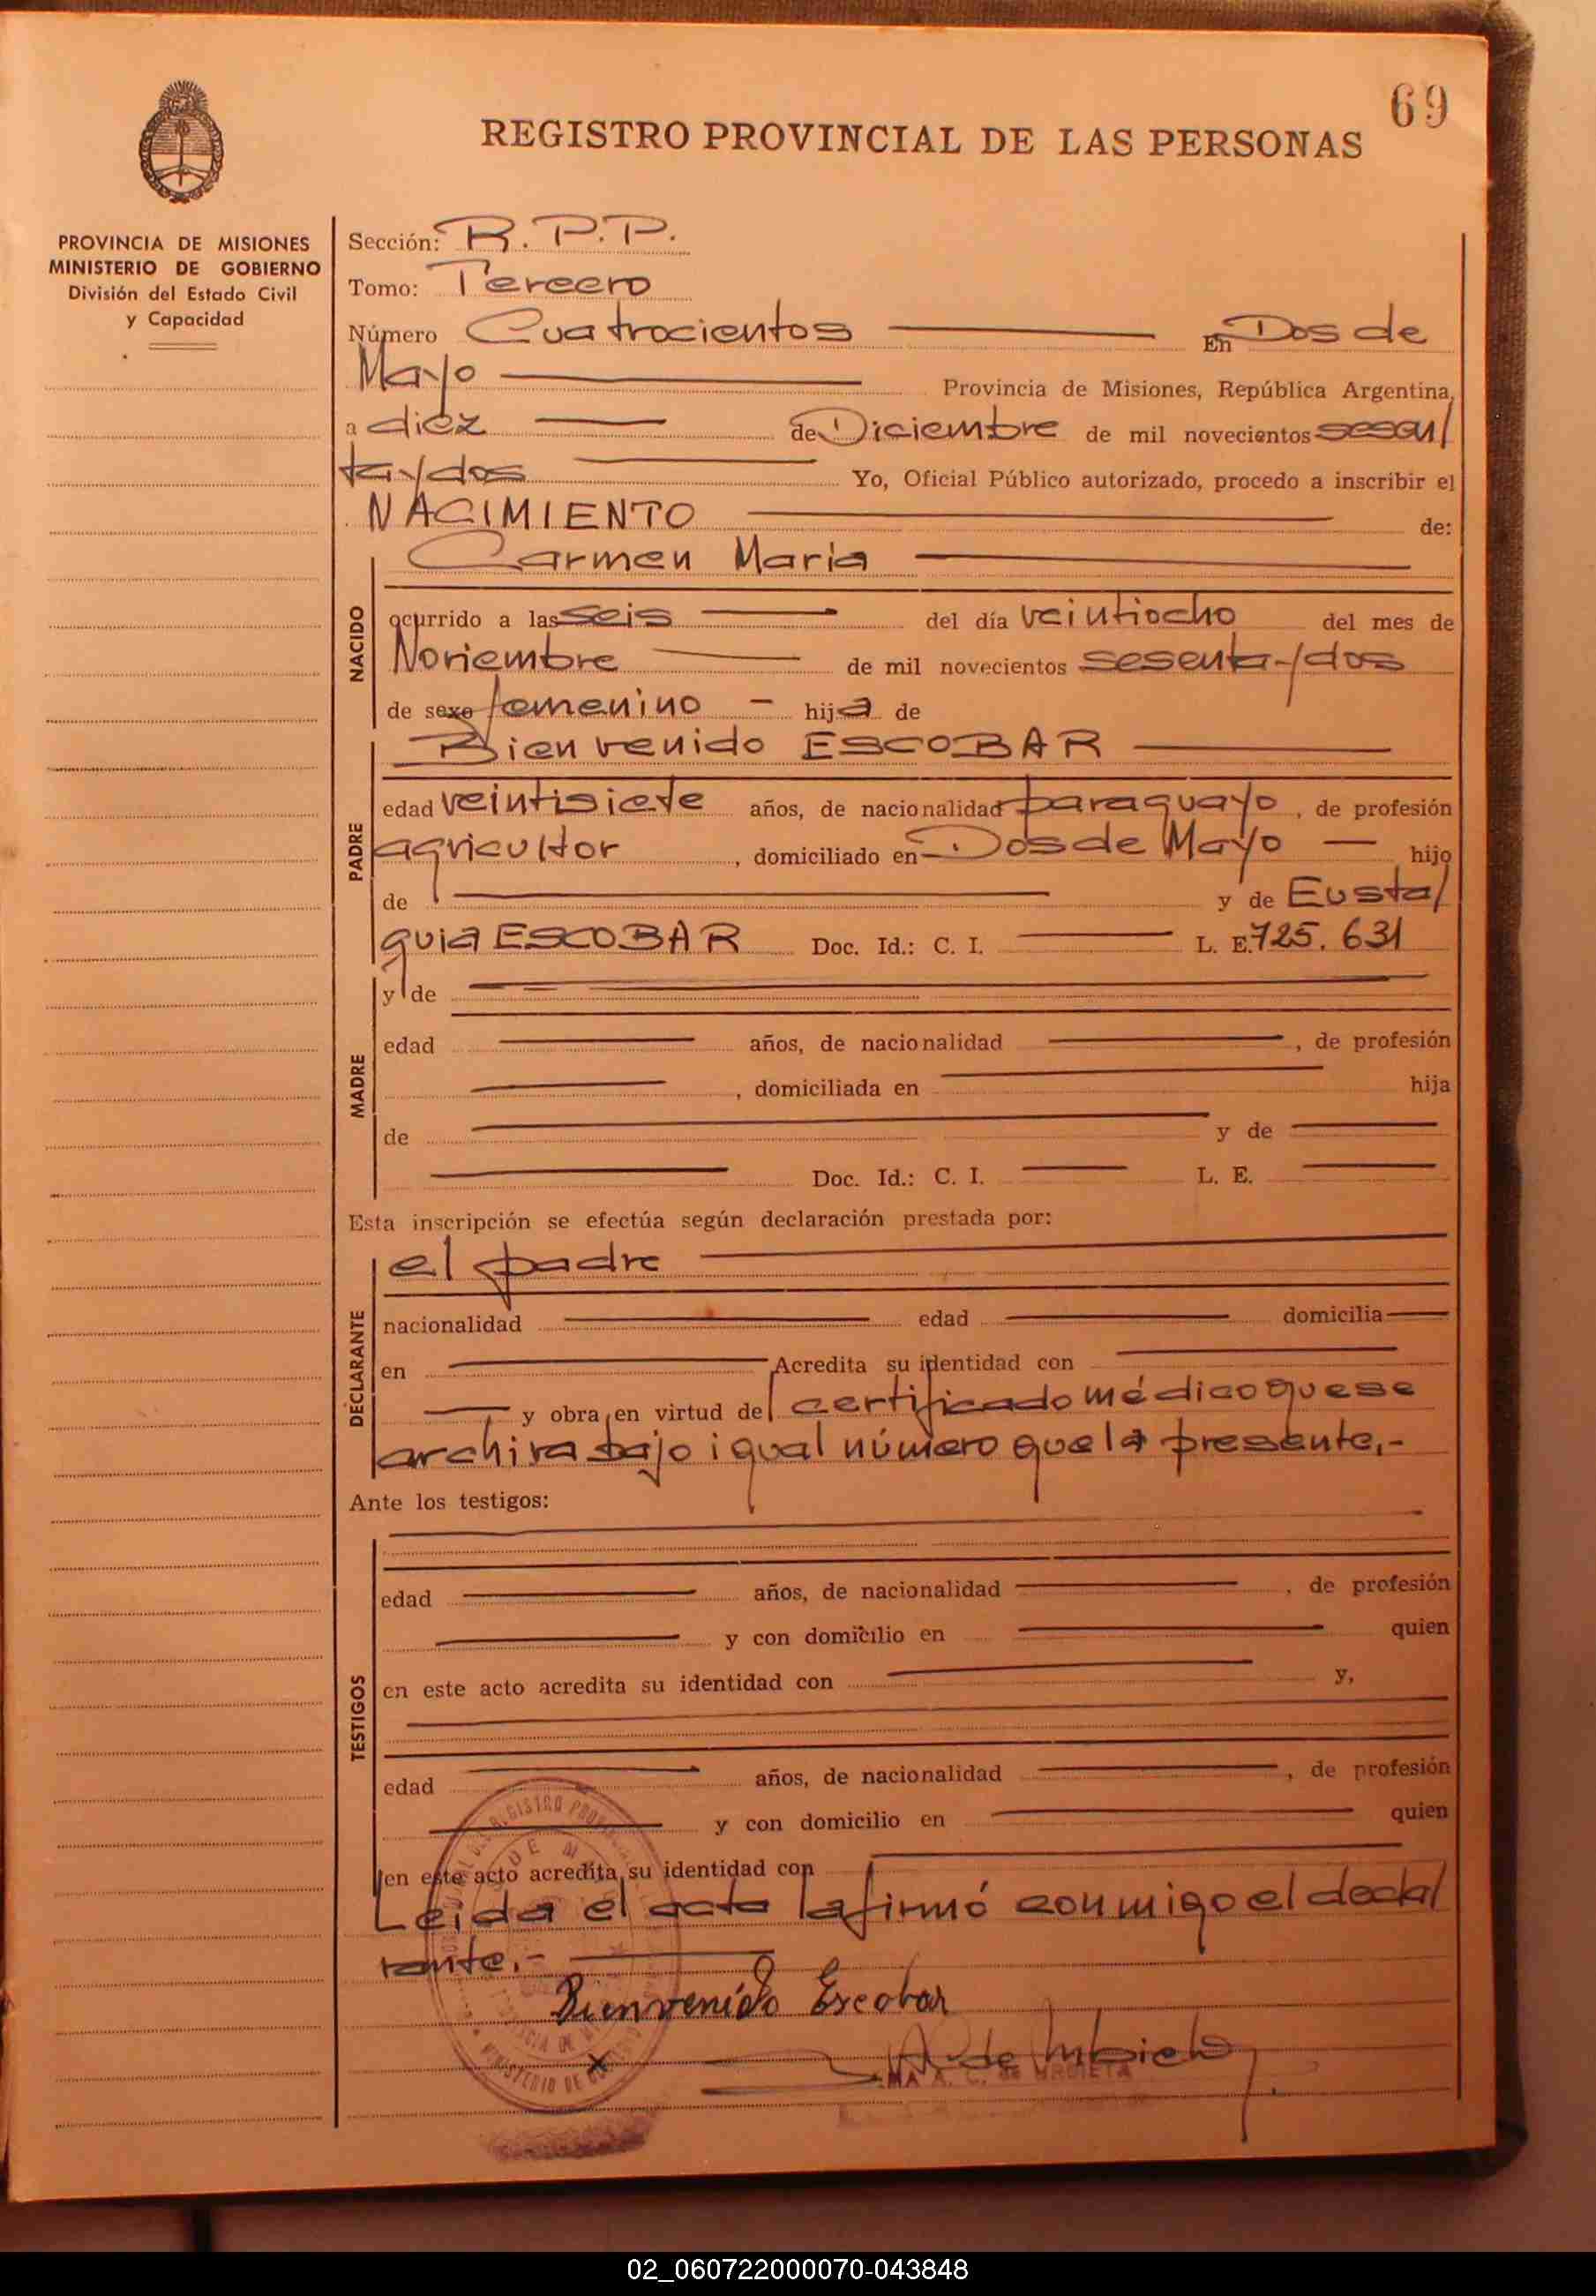 69
REGISTRO PROVINCIAL DE LAS PERSONAS
PROVINCIA DE MISIONES
MINISTERIO DE GOBIERNO
División del Estado Civil
y Capacidad
Sección: R. P. P.
Tomo: Tercero
Número Cuatrocientos En Dos de
Mayo Provincia de Misiones, República Argentina,
a diez de Diciembre de mil novecientos sesen/
ta y dos Yo, Oficial Público autorizado, procedo a inscribir el
NACIMIENTO de:
NACIDO
Carmen Maria
ocurrido a las seis del día veintiocho del mes de
Noviembre de mil novecientos sesenta y dos
de sexo femenino - hija de
PADRE
Bienvenido ESCOBAR
edad veintisiete años, de nacionalidad paraguayo, de profesión
agricultor, domiciliado en Dos de Mayo hijo
de y de Eusta/
quia ESCOBAR Doc. Id.: C. I. L. E. 725.631
MADRE
y de
edad años, de nacionalidad , de profesión
, domiciliada en hija
de y de
Doc. Id.: C. I. L. E.
Esta inscripción se efectúa según declaración prestada por:
DECLARANTE
el padre
nacionalidad edad domicilia
en Acredita su identidad con
y obra en virtud del certificado médico que se
archiva bajo igual número que la presente.-
Ante los testigos:
TESTIGOS
edad años, de nacionalidad , de profesión
y con domicilio en quien
en este acto acredita su identidad con y,
edad años, de nacionalidad , de profesión
y con domicilio en quien
en este acto acredita su identidad con
Leida el acta la firmó conmigo el decla/
rante.-
Bienvenido Escobar
A. de Urbieta
A. C. de URBIETA
REGISTRO PROVINCIAL
MINISTERIO DE GOBIERNO
02_060722000070-043848